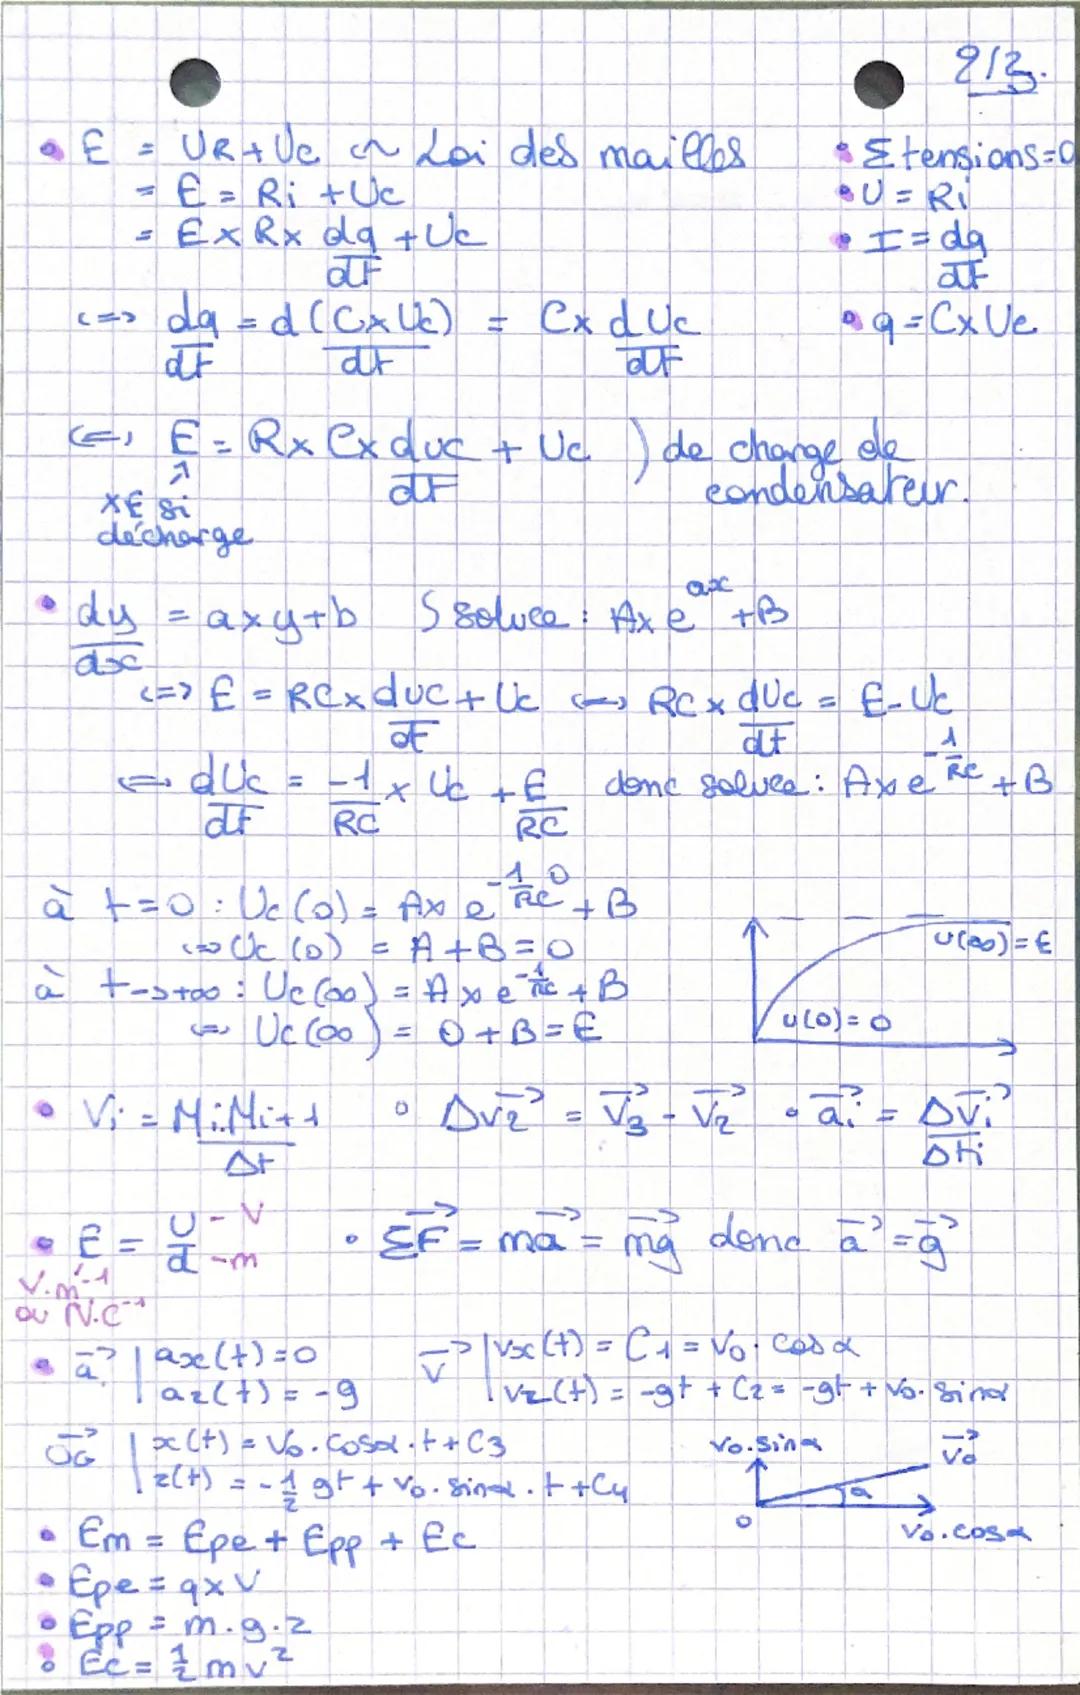 2/3.
• E = UR + Uc ~ Loi des mailles • Σ tensions = 0
= E = Ri + Uc • U = Ri
= E x R x dq/dt + Uc • I = dq/dt
<=> dq/dt = d(C x Uc)/dt = C x dUc/dt • q = C x Uc
<=> E = R x C x duc/dt + Uc ) de charge de condensateur.
↗
x E si
décharge
• dy/dx = a x y + b S soluce : A x e^ax + B
<=> E = RC x duc/dt + Uc <=> RC x dUc/dt = E - Uc
<=> dUc/dt = -1/RC x Uc + E/RC donc soluce : A x e^-1/RC + B
à t=0 : Uc(0) = A x e^-1/RC 0 + B
<=> Uc(0) = A + B = 0
u(∞) = E
à t->+∞ : Uc(∞) = A x e^-1/RC + B
<=> Uc(∞) = 0 + B = E
u(0) = 0
• Vi = MiMi+1/Δt • Δv2→ = V3→ - V2→ • ai→ = ΔVi→/Δti
• E = U/d - V -m • ΣF→ = ma→ = mg→ donc a→ = g→
V.m-1
ou N.C-1
• a→ | ax(t) = 0 v→ | vx(t) = C1 = V0. cosα
az(t) = -g vz(t) = -gt + C2 = -gt + V0. sinα
OG→ | x(t) = V0.cosα.t + C3
z(t) = -1/2 gt + V0.sinα.t + C4
V0.sinα V0→
α
0 V0.cosα
• Em = Epe + Epp + Ec
• Epe = q x V
• Epp = m.g.z
• Ec = 1/2 mv²